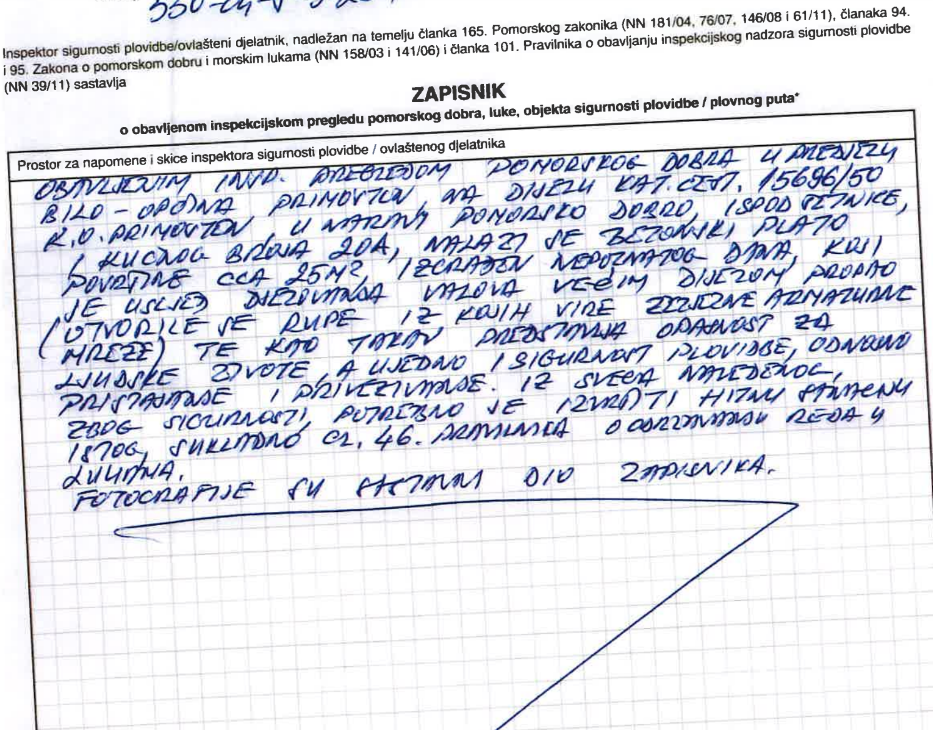 Inspektor sigurnosti plovidbe/ovlašteni djelatnik, nadležan na temelju članka 165. Pomorskog zakonika (NN 181/04, 76/07, 146/08 i 61/11), članaka 94.
i 95. Zakona o pomorskom dobru i morskim lukama (NN 158/03 i 141/06) i članka 101. Pravilnika o obavljanju inspekcijskog nadzora sigurnosti plovidbe
(NN 39/11) sastavlja
ZAPISNIK
o obavljenom inspekcijskom pregledu pomorskog dobra, luke, objekta sigurnosti plovidbe / plovnog puta*
Prostor za napomene i skice inspektora sigurnosti plovidbe / ovlaštenog djelatnika
OBAVLJENIM INSP. PREGLEDOM POMORSKOG DOBRA U PREDJELU
BILO - OPĆINA PRIMOŠTEN, NA DIJELU KAT. ČEST. 15696/50
K.O. PRIMOŠTEN, U NARAVI POMORSKO DOBRO, ISPOD ŠETNICE,
I KUĆNOG BROJA 20A, NALAZI SE BETONSKI PLATO
POVRŠINE CCA 25M2, IZGRAĐEN NEPOZNATOG DANA, KOJI
JE USLJED DJELOVANJA VALOVA VEĆIM DIJELOM PROPAO
(OTVORILE SE RUPE IZ KOJIH VIRE ŽELJEZNE ARMATURNE
MREŽE) TE KAO TAKAV PREDSTAVLJA OPASNOST ZA
LJUDSKE ŽIVOTE, A UJEDNO I SIGURNOST PLOVIDBE, ODNOSNO
PRISTAJANJE I PRIVEZIVANJE. IZ SVEGA NAVEDENOG,
ZBOG SIGURNOSTI, POTREBNO JE IZVRŠITI HITNU SANACIJU
ISTOG, SUKLADNO ČL. 46. PRAVILNIKA O ODRŽAVANJU REDA U
LUKAMA.
FOTOGRAFIJE SU SASTAVNI DIO ZAPISNIKA.